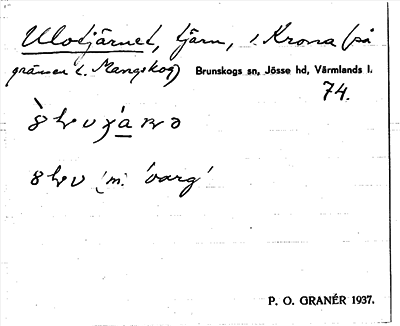 Ulotjärnet, tjärn, i Krona (på
gränsen t. Mangskog) Brunskogs sn, Jösse hd, Värmlands l.
74.
m. 'varg'
P. O. GRANÉR 1937.